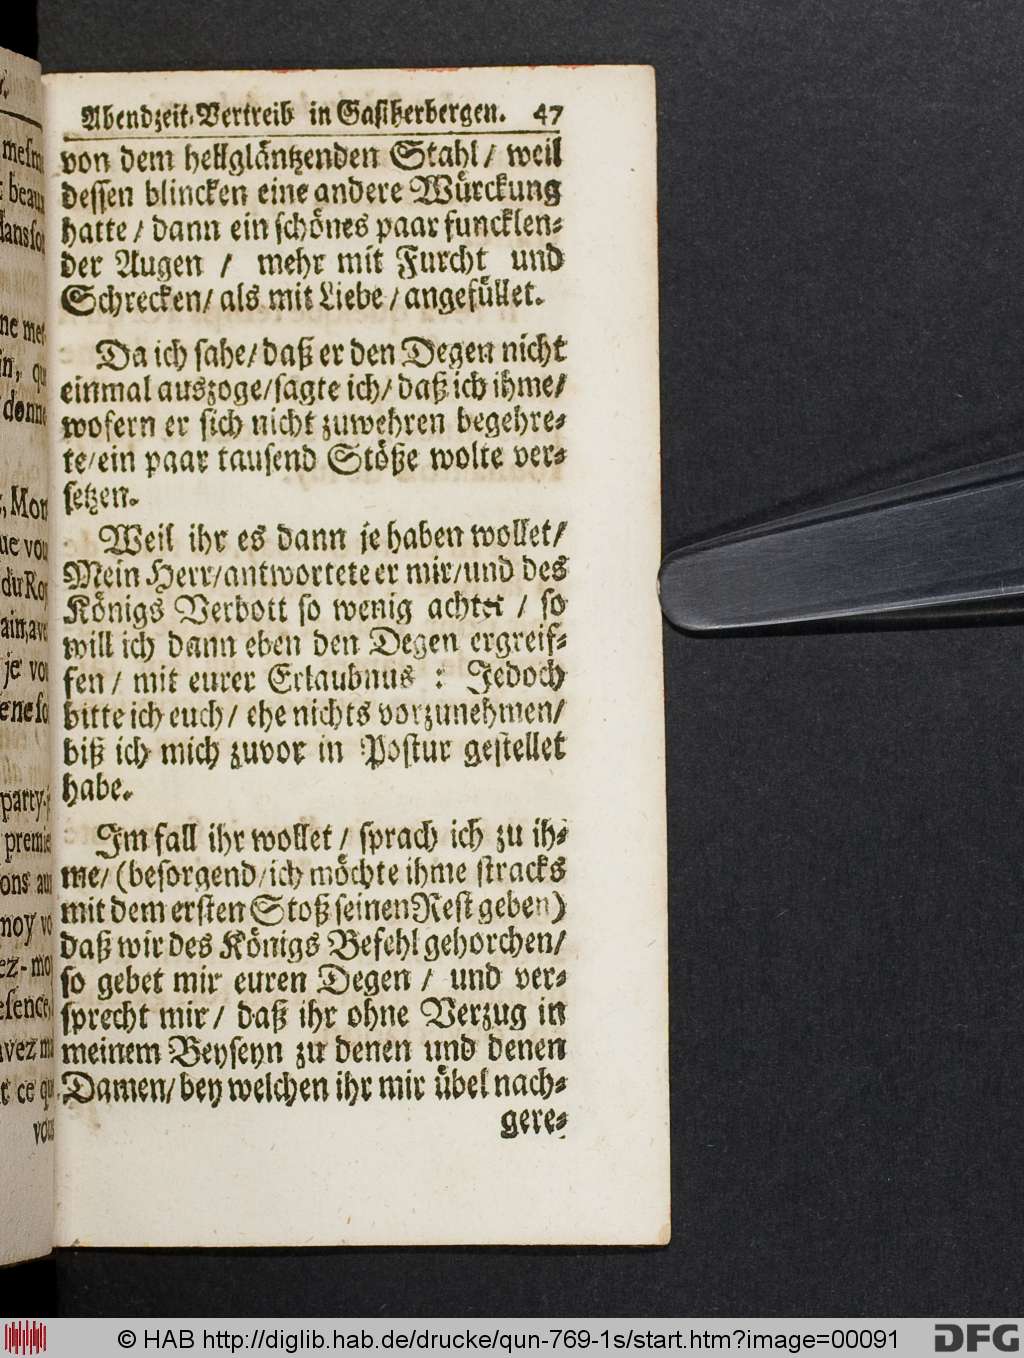 Abendzeit-Vertreib in Gastherbergen. 47
von dem hellgläntzenden Stahl / weil
dessen blincken eine andere Würckung
hatte / dann ein schönes paar funcklen-
der Augen / mehr mit Furcht und
Schrecken / als mit Liebe / angefüllet.
Da ich sahe / daß er den Degen nicht
einmal auszoge / sagte ich / daß ich ihme /
wofern er sich nicht zuwehren begehre-
te / ein paar tausend Stöße wolte ver-
setzen.
Weil ihr es dann je haben wollet /
Mein Herr / antwortete er mir / und des
Königs Verbott so wenig achtet / so
will ich dann eben den Degen ergreif-
fen / mit eurer Erlaubnus : Jedoch
bitte ich euch / ehe nichts vorzunehmen /
biß ich mich zuvor in Postur gestellet
habe.
Im fall ihr wollet / sprach ich zu ih-
me / (besorgend / ich möchte ihme stracks
mit dem ersten Stoß seinen Rest geben)
daß wir des Königs Befehl gehorchen /
so gebet mir euren Degen / und ver-
sprecht mir / daß ihr ohne Verzug in
meinem Beyseyn zu denen und denen
Damen / bey welchen ihr mir übel nach-
gere-
© HAB http://diglib.hab.de/drucke/qun-769-1s/start.htm?image=00091
DFG